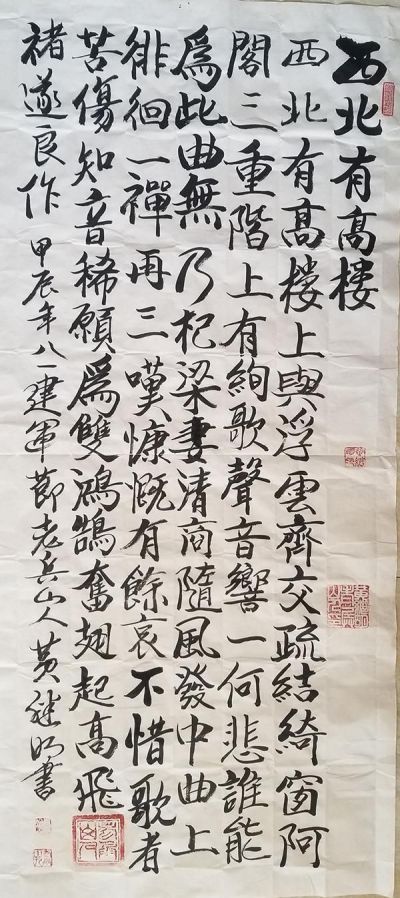 西北有高樓
西北有高樓上與浮雲齊交疏結綺窗阿
閣三重階上有絢歌聲音響一何悲誰能
爲此曲無乃杞梁妻清商隨風發中曲上
徘徊一禪再三嘆慷慨有餘哀不惜歌者
苦傷知音稀願爲雙鴻鵠奮翅起高飛
褚遂良作 甲辰年八一建軍節老兵山人黄继明書